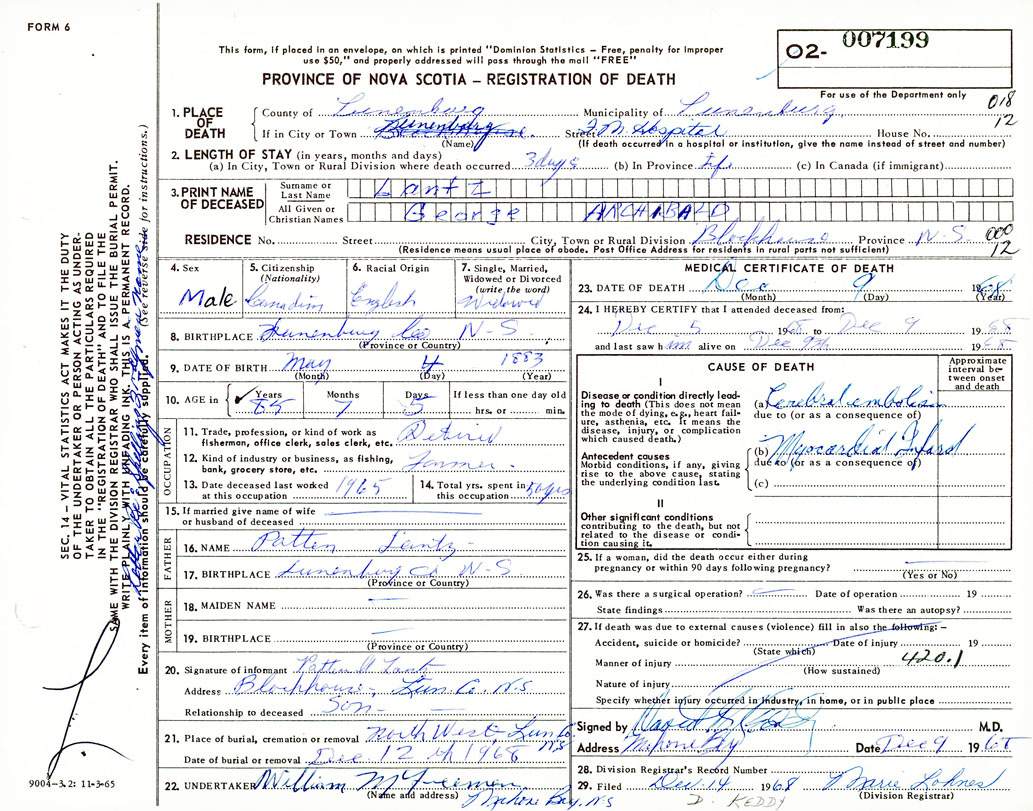 FORM 6
This form, if placed in an envelope, on which is printed "Dominion Statistics – Free, penalty for improper
use $50," and properly addressed will pass through the mail "FREE"
PROVINCE OF NOVA SCOTIA – REGISTRATION OF DEATH
O2- 007199
For use of the Department only
018
12
1. PLACE OF DEATH { County of Lunenburg Municipality of Lunenburg
If in City or Town Lunenburg Street F. M. Hospital House No.
(Name) (If death occurred in a hospital or institution, give the name instead of street and number)
2. LENGTH OF STAY (in years, months and days)
(a) In City, Town or Rural Division where death occurred 3 days (b) In Province Life (c) In Canada (if immigrant)
3. PRINT NAME OF DECEASED { Surname or Last Name Lantz
All Given or Christian Names George ARCHIBALD
RESIDENCE No. Street City, Town or Rural Division Blockhouse Province N-S. 000
12
(Residence means usual place of abode. Post Office Address for residents in rural parts not sufficient)
4. Sex Male
5. Citizenship (Nationality) Canadian
6. Racial Origin English
7. Single, Married, Widowed or Divorced (write the word) Widowed
8. BIRTHPLACE Lunenburg Co N-S
(Province or Country)
9. DATE OF BIRTH May 4 1883
(Month) (Day) (Year)
10. AGE in { Years 85 Months 7 Days 5 If less than one day old
hrs. or min.
OCCUPATION
11. Trade, profession, or kind of work as fisherman, office clerk, sales clerk, etc. Retired
12. Kind of industry or business, as fishing, bank, grocery store, etc. Farmer
13. Date deceased last worked at this occupation 1965
14. Total yrs. spent in this occupation 50 yrs
15. If married give name of wife or husband of deceased
FATHER
16. NAME Patten Lantz
17. BIRTHPLACE Lunenburg Co N-S
(Province or Country)
MOTHER
18. MAIDEN NAME
19. BIRTHPLACE
(Province or Country)
20. Signature of informant Patten A Lantz
Address Blockhouse, Lun. Co. N.S.
Relationship to deceased Son
21. Place of burial, cremation or removal North West Lun Co N.S
Date of burial or removal Dec. 12 th 1968
22. UNDERTAKER William M Freeman
(Name and address) Mahone Bay, N.S
MEDICAL CERTIFICATE OF DEATH
23. DATE OF DEATH Dec 9 1968
(Month) (Day) (Year)
24. I HEREBY CERTIFY that I attended deceased from:
Dec 5 1968 to Dec 9 1968
and last saw him alive on Dec 9th 1968
CAUSE OF DEATH
Approximate interval between onset and death
I
Disease or condition directly leading to death (This does not mean the mode of dying, e.g., heart failure, asthenia, etc. It means the disease, injury, or complication which caused death.)
(a) Cerebral embolism
due to (or as a consequence of)
Antecedent causes
Morbid conditions, if any, giving rise to the above cause, stating the underlying condition last.
(b) Myocardial Infarct
due to (or as a consequence of)
(c)
II
Other significant conditions
contributing to the death, but not related to the disease or condition causing it.
25. If a woman, did the death occur either during
pregnancy or within 90 days following pregnancy?
(Yes or No)
26. Was there a surgical operation? Date of operation 19
State findings Was there an autopsy?
27. If death was due to external causes (violence) fill in also the following: –
Accident, suicide or homicide? Date of injury 19
(State which)
Manner of injury 420.1
(How sustained)
Nature of injury
Specify whether injury occurred in industry, in home, or in public place
Signed by M.D.
Address Mahone Bay Date Dec 9 1968
28. Division Registrar's Record Number
29. Filed Dec. 14 1968 Marie Lohnes
D. KEDDY (Division Registrar)
SEC. 14 – VITAL STATISTICS ACT MAKES IT THE DUTY
OF THE UNDERTAKER OR PERSON ACTING AS UNDER-
TAKER TO OBTAIN ALL THE PARTICULARS REQUIRED
IN THE "REGISTRATION OF DEATH" AND TO FILE THE
SAME WITH THE DIVISION REGISTRAR WHO SHALL ISSUE THE BURIAL PERMIT.
WRITE PLAINLY WITH UNFADING INK. THIS IS A PERMANENT RECORD.
Every item of information should be carefully supplied. (See reverse side for instructions.)
9004–3.2: 11-3-65